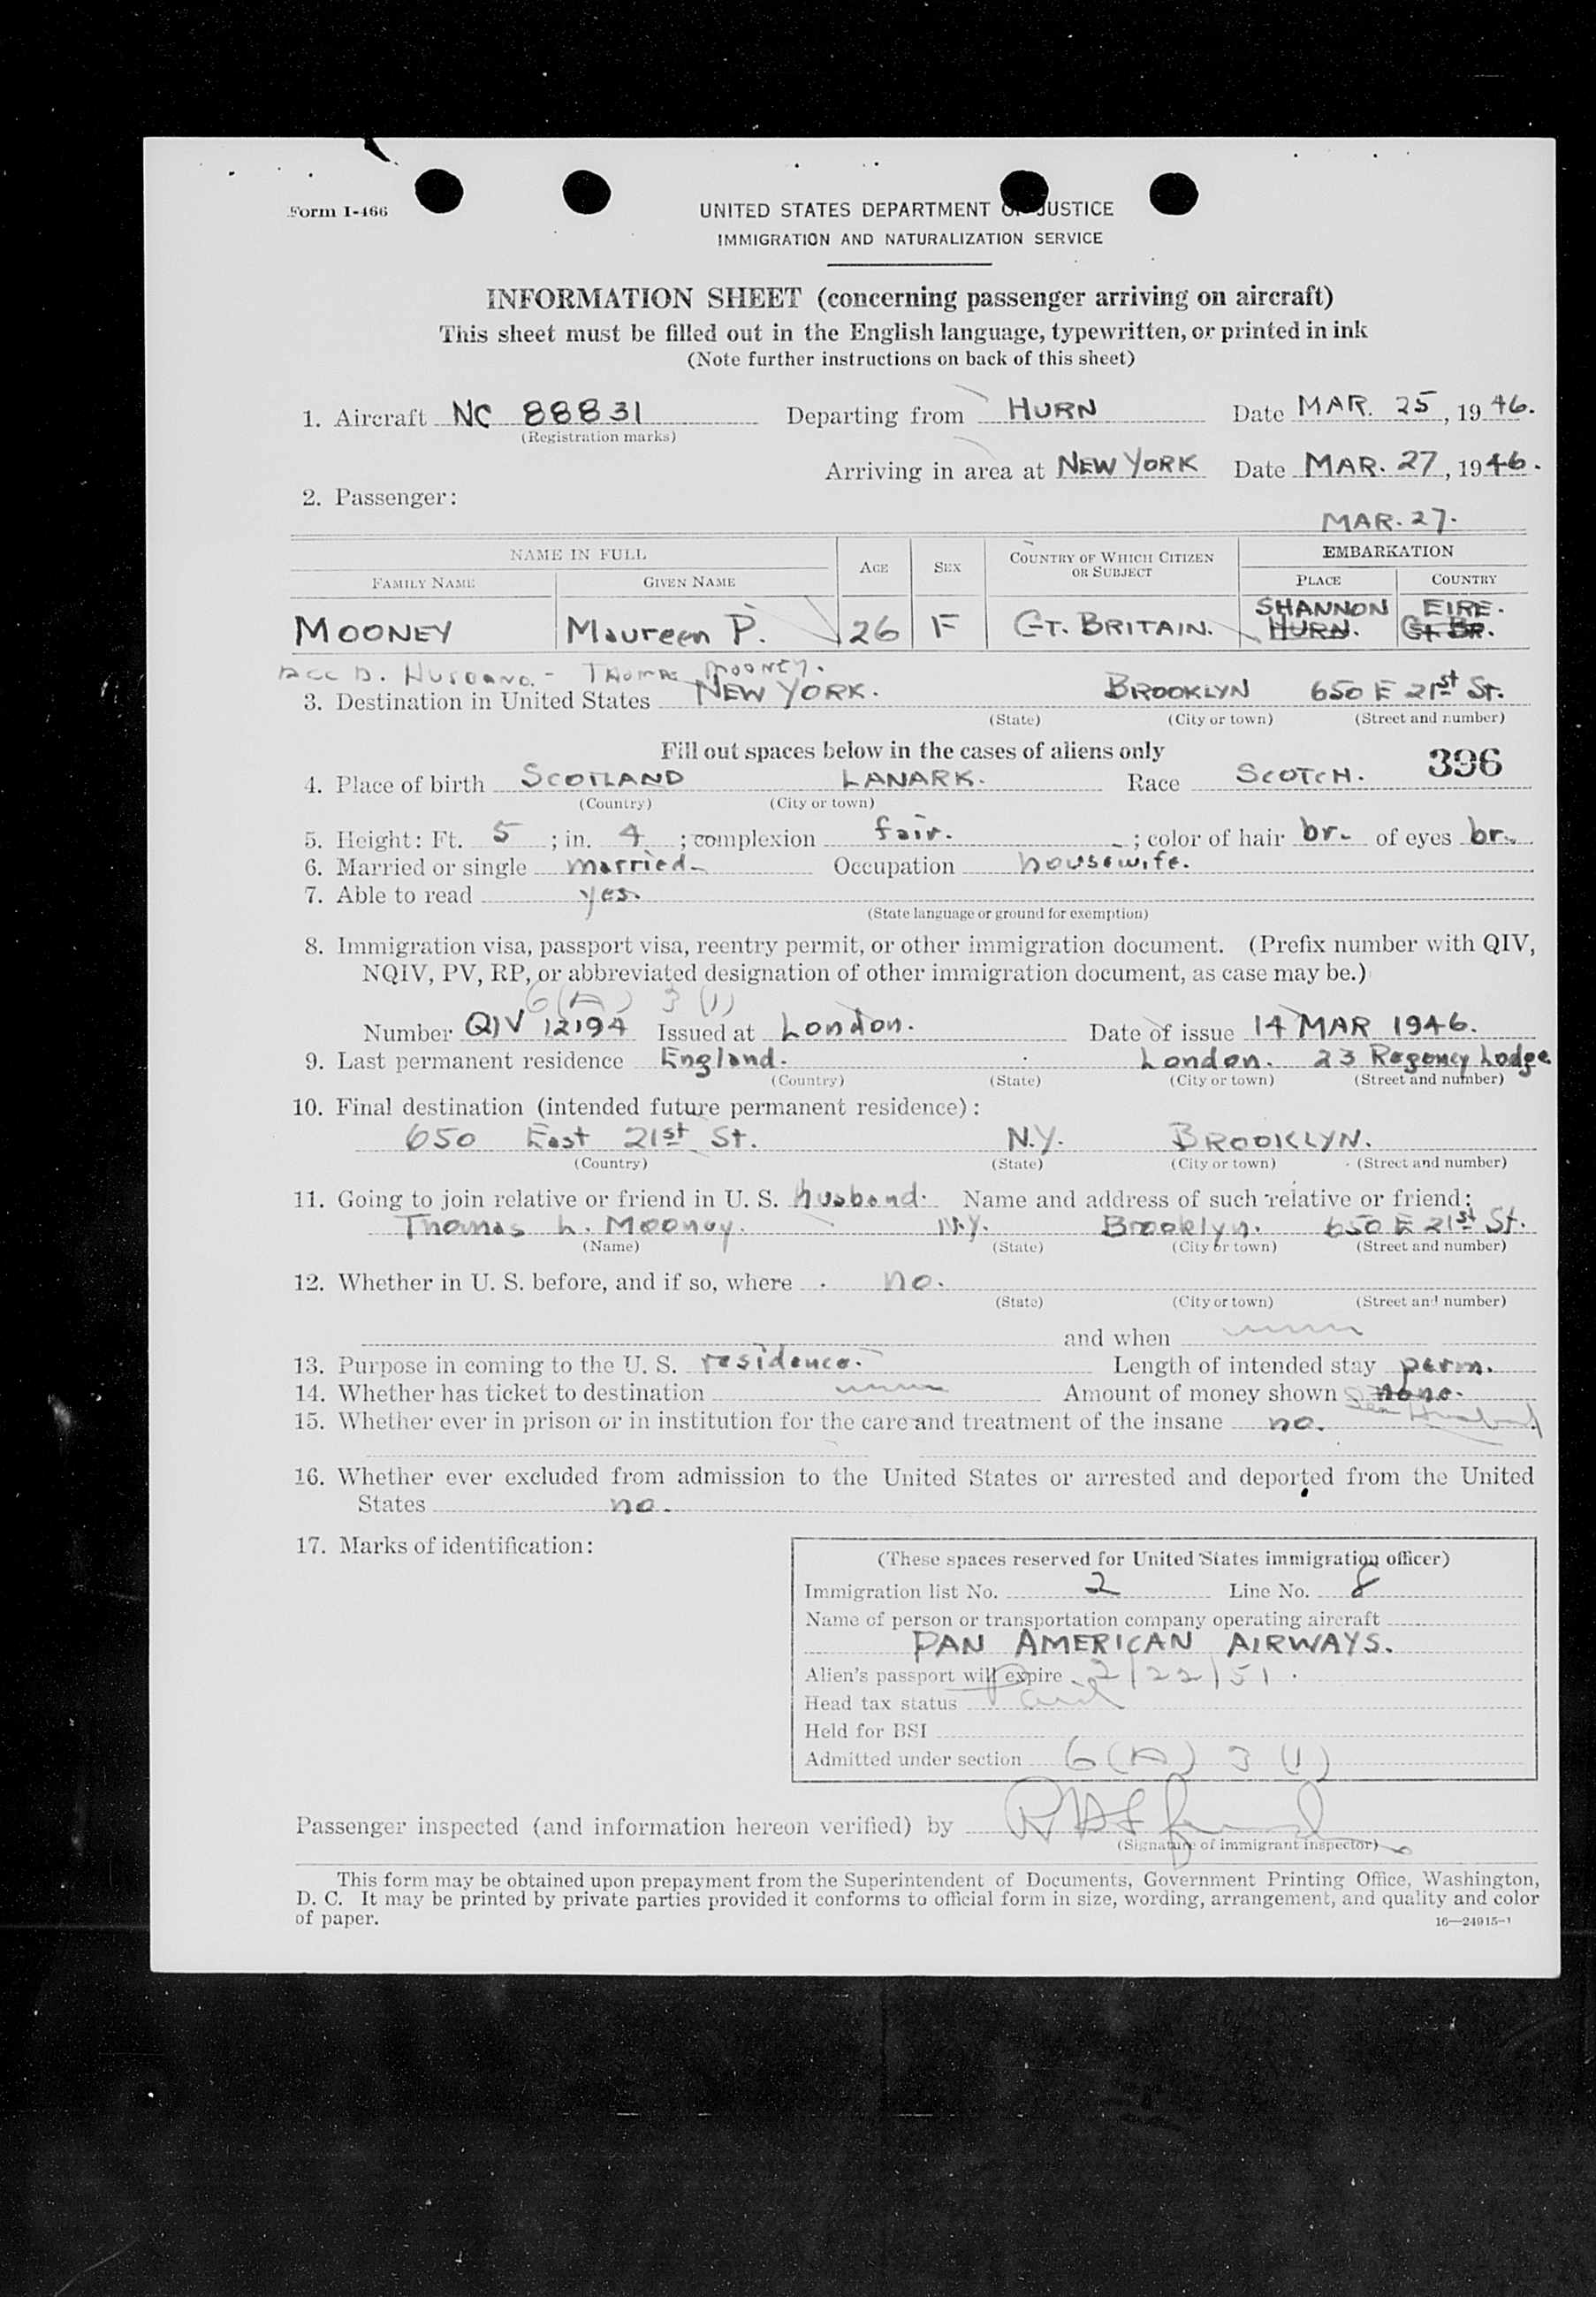 Form I-466
UNITED STATES DEPARTMENT OF JUSTICE
IMMIGRATION AND NATURALIZATION SERVICE
INFORMATION SHEET (concerning passenger arriving on aircraft)
This sheet must be filled out in the English language, typewritten, or printed in ink
(Note further instructions on back of this sheet)
1. Aircraft NC 88831 Departing from HURN Date MAR. 25, 1946.
(Registration marks)
Arriving in area at NEW YORK Date MAR. 27, 1946.
2. Passenger:
MAR. 27.
NAME IN FULL AGE SEX COUNTRY OF WHICH CITIZEN OR SUBJECT EMBARKATION
FAMILY NAME GIVEN NAME PLACE COUNTRY
SHANNON EIRE.
MOONEY Maureen P. 26 F GT. BRITAIN. HURN. Gt. BR.
ACC B. HUSBAND. - THOMAS MOONEY.
3. Destination in United States NEW YORK. BROOKLYN 650 E 21st St.
(State) (City or town) (Street and number)
Fill out spaces below in the cases of aliens only
396
4. Place of birth SCOTLAND LANARK. Race SCOTCH.
(Country) (City or town)
5. Height: Ft. 5 ; in. 4 ; complexion fair. ; color of hair br. of eyes br.
6. Married or single married Occupation housewife.
7. Able to read yes.
(State language or ground for exemption)
8. Immigration visa, passport visa, reentry permit, or other immigration document. (Prefix number with QIV,
NQIV, PV, RP, or abbreviated designation of other immigration document, as case may be.)
6(A) 3 (1)
Number QIV 12194 Issued at London. Date of issue 14 MAR 1946.
9. Last permanent residence England. London. 23 Regency Lodge
(Country) (State) (City or town) (Street and number)
10. Final destination (intended future permanent residence):
650 East 21st St. N.Y. BROOKLYN.
(Country) (State) (City or town) (Street and number)
11. Going to join relative or friend in U. S. husband. Name and address of such relative or friend:
Thomas L. Mooney. N.Y. Brooklyn. 650 E 21st St.
(Name) (State) (City or town) (Street and number)
12. Whether in U. S. before, and if so, where no.
(State) (City or town) (Street and number)
and when
13. Purpose in coming to the U. S. residence. Length of intended stay perm.
14. Whether has ticket to destination Amount of money shown none.
See Husband
15. Whether ever in prison or in institution for the care and treatment of the insane no.
16. Whether ever excluded from admission to the United States or arrested and deported from the United
States no.
17. Marks of identification:
(These spaces reserved for United States immigration officer)
Immigration list No. 2 Line No. 8
Name of person or transportation company operating aircraft
PAN AMERICAN AIRWAYS.
Alien's passport will expire 2/22/51.
Head tax status Paid
Held for BSI
Admitted under section 6(A) 3 (1)
Passenger inspected (and information hereon verified) by
(Signature of immigrant inspector)
This form may be obtained upon prepayment from the Superintendent of Documents, Government Printing Office, Washington,
D. C. It may be printed by private parties provided it conforms to official form in size, wording, arrangement, and quality and color
of paper.
16—24915-1